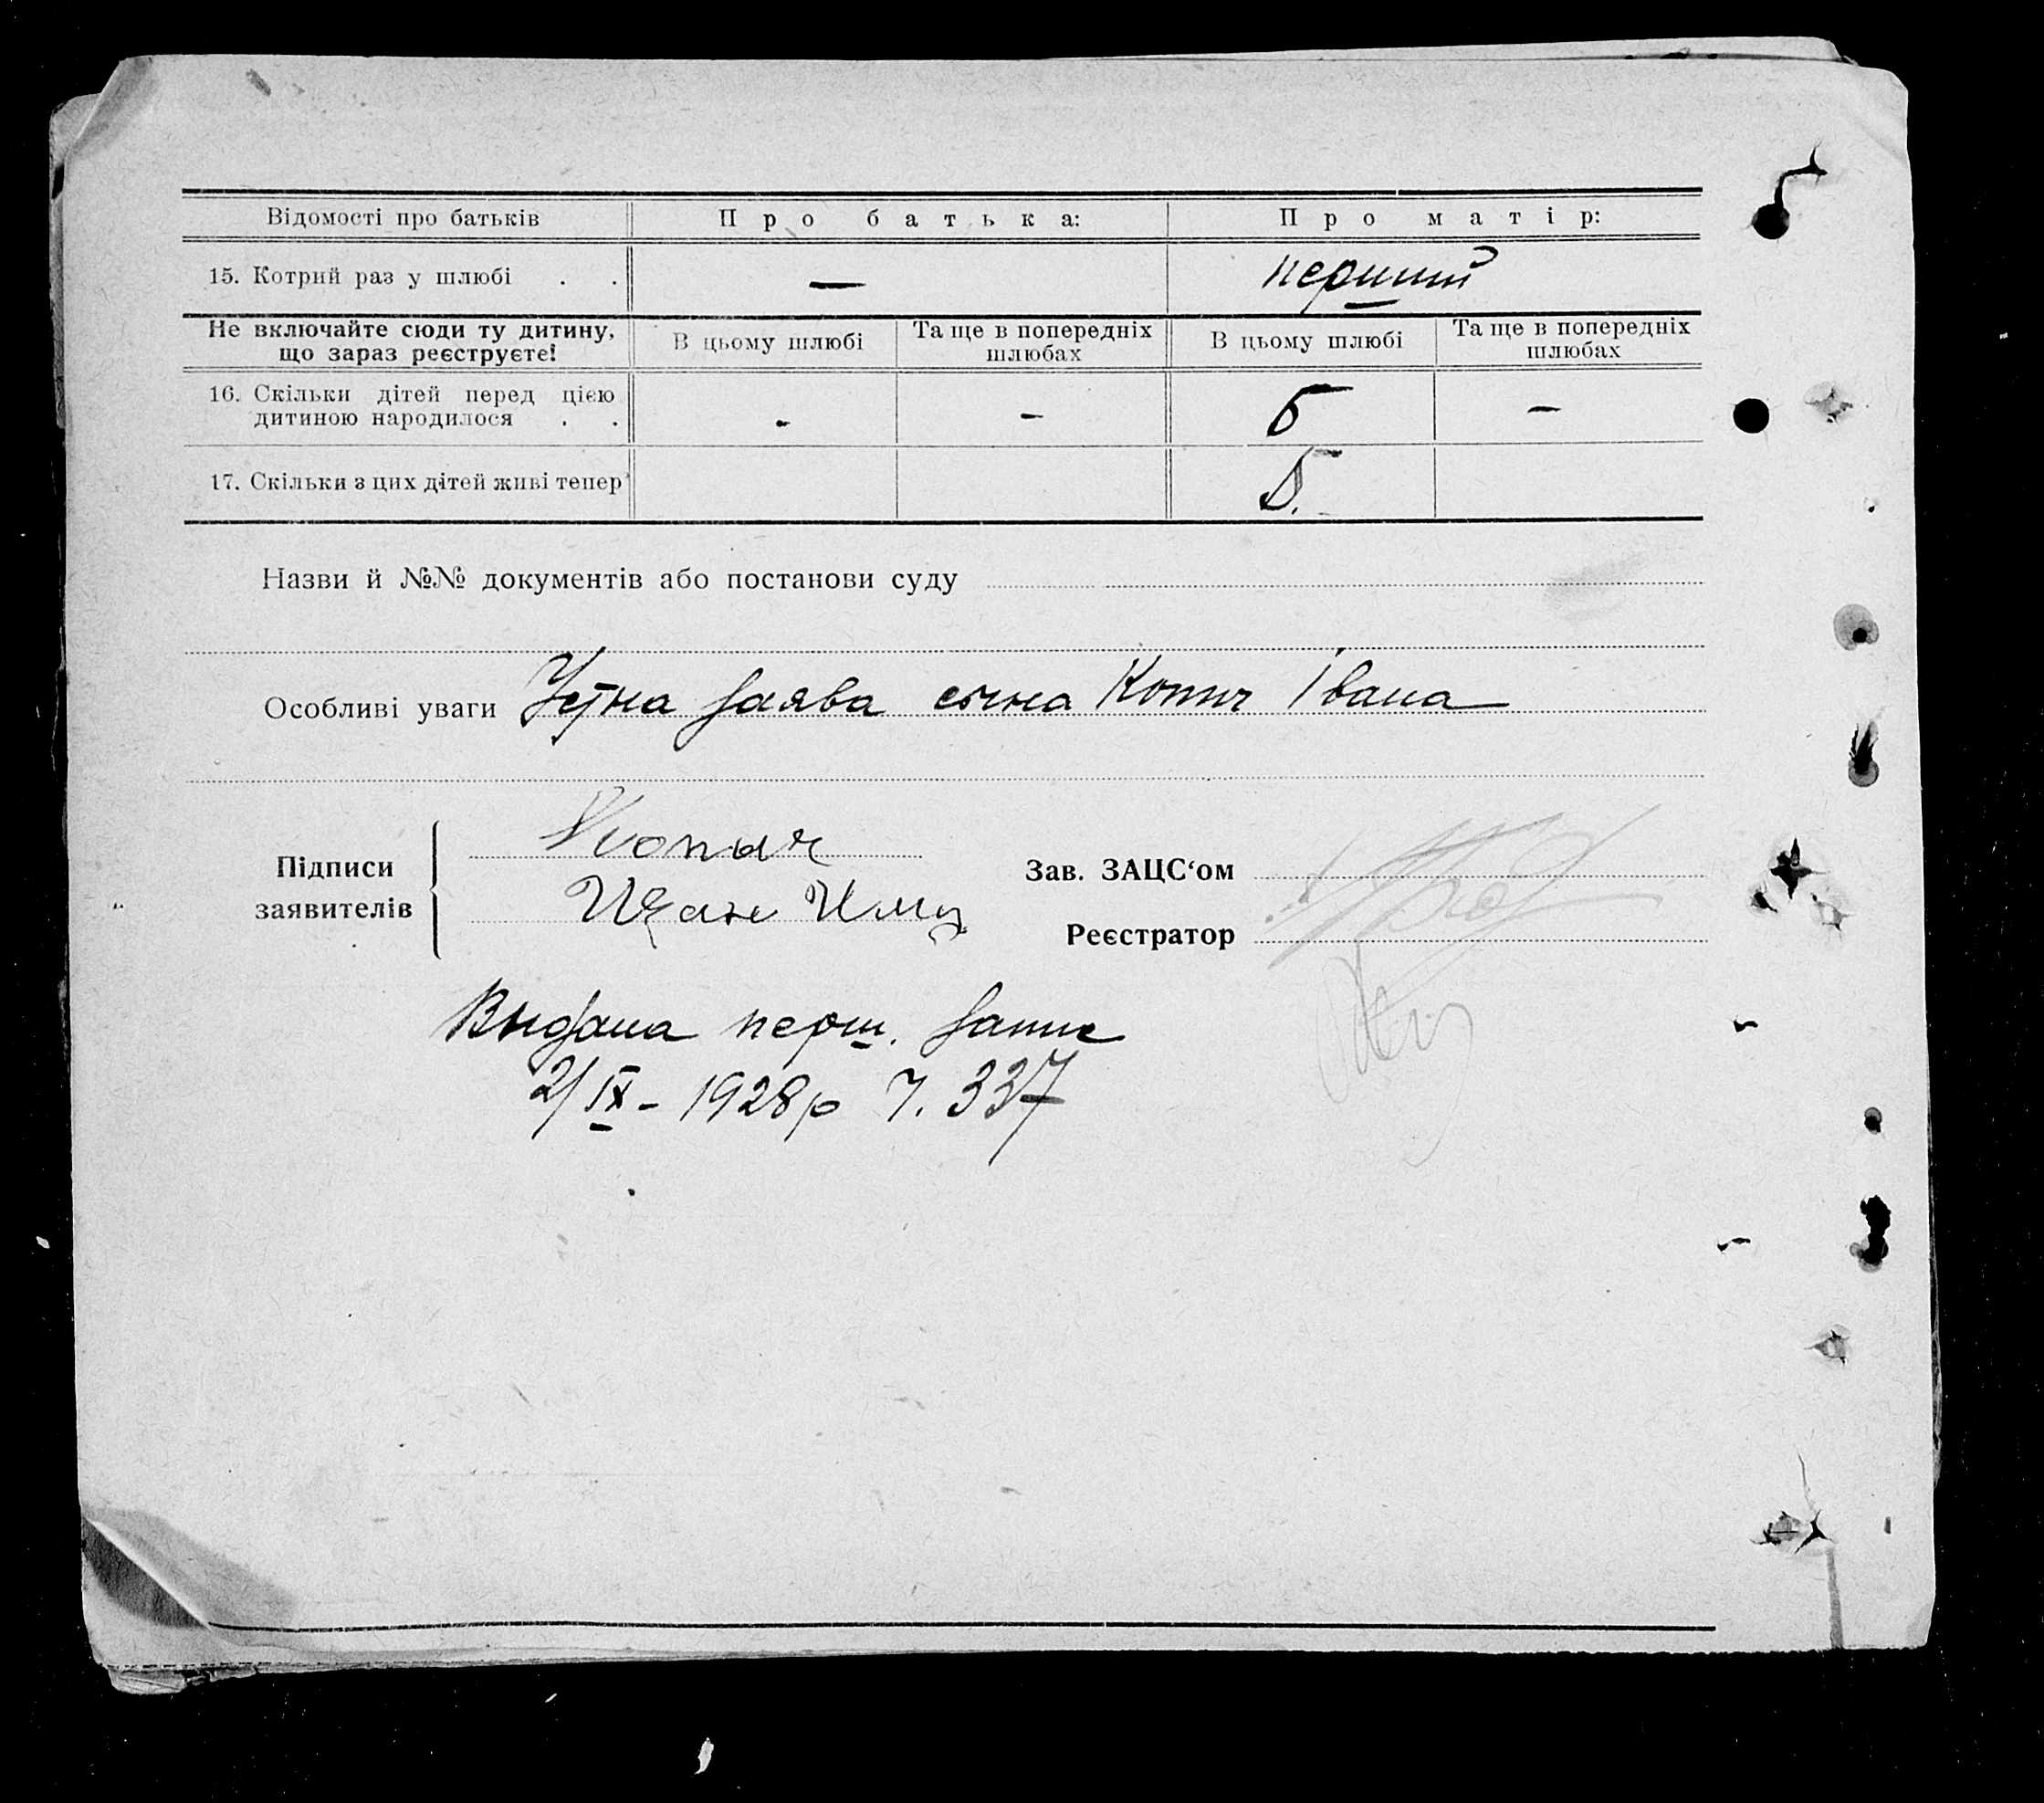 Відомості про батьків | Про батька: | Про матір:
15. Котрий раз у шлюбі . . | — | перший
Не включайте сюди ту дитину, що зараз реєструєте! | В цьому шлюбі | Та ще в попередніх шлюбах | В цьому шлюбі | Та ще в попередніх шлюбах
16. Скільки дітей перед цією дитиною народилося . . | - | - | 5 | -
17. Скільки з цих дітей живі тепер | 5.
Назви й №№ документів або постанови суду
Особливі уваги Устна заява сина Копич Івана
Підписи заявителів
Копач
Иван
Зав. ЗАЦС‘ом
Реєстратор
Выдана перш. запис
2/IX - 1928р Ч. 337